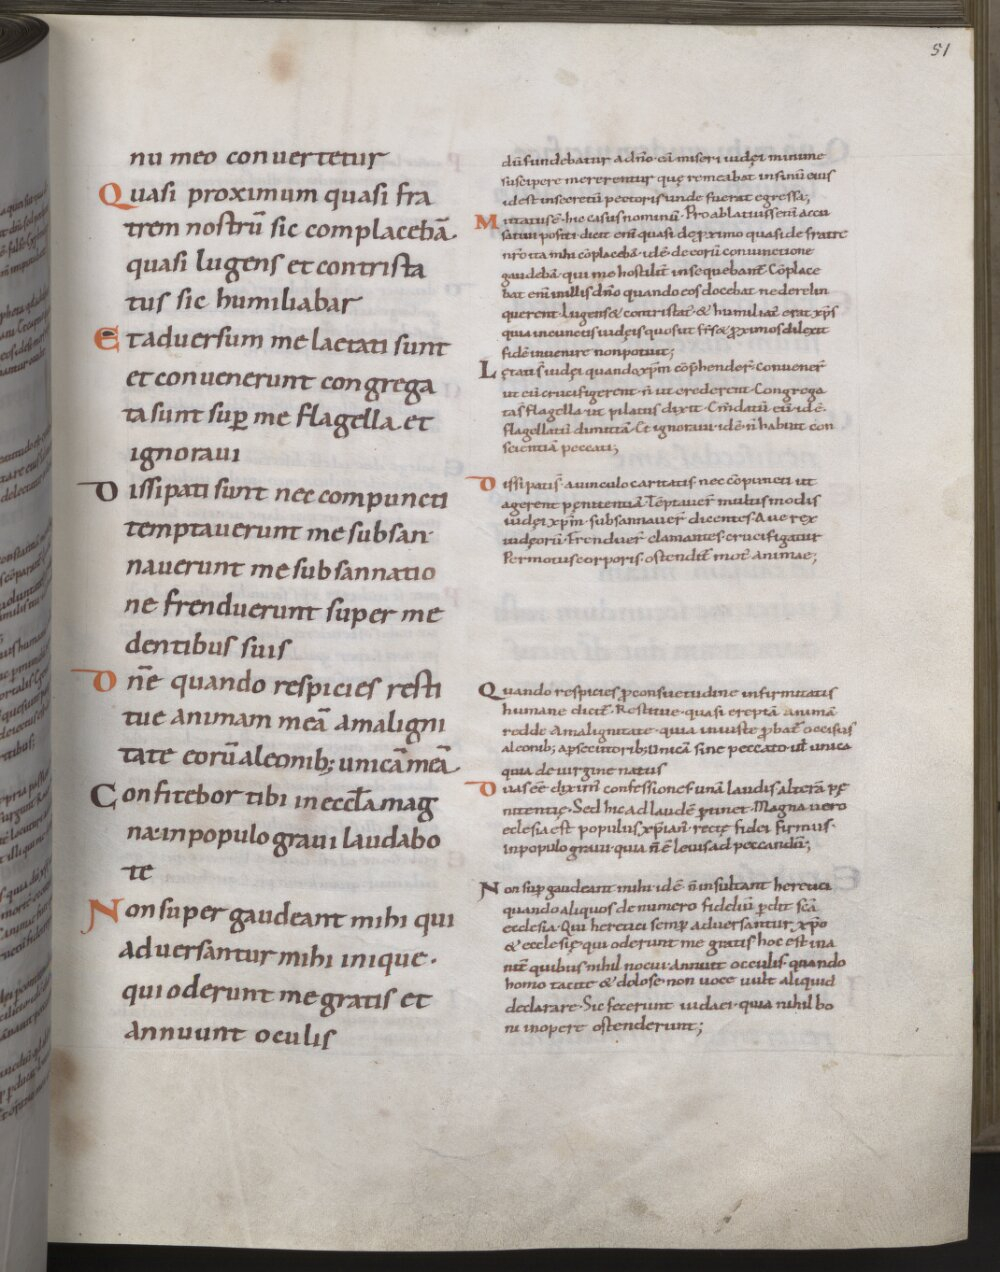 51
nu meo conuertetur
Quasi proximum quasi fra
trem nostrū sic complacebā.
quasi lugens et contrista
tus sic humiliabar
Et aduersum me laetati sunt
et conuenerunt congrega
ta sunt sup me flagella. et
ignoraui
Dissipati sunt nec compuncti
temptauerunt me subsan
nauerunt me subsannatio
ne frenduerunt super me
dentibus suis
Dn̄e quando respicies resti
tue animam meā amaligni
tate eorū aleonib; unicā meā
Confitebor tibi in eccl̄a mag
na: in populo graui laudabo
te
Non super gaudeant mihi qui
aduersantur mihi inique.
qui oderunt me gratis et
annuunt oculis
dū fundebatur adn̄o. cū miseri iudęi minime
suscipere mererentur quę remeabat insinū eius
id est insecretū pectoris unde fuerat egressa;
Mutatus ē hic casus nominū. Pro ablatiuis enī accu
satiui positi dicit enī quasi de proximo quasi de fratre
nr̄o ita mihi cōplacebā. id ē de eorū conuinctione
gaudebā. qui me hostilit insequebant. Cōplace
bat enī in illis dn̄o quando eos docebat ne derelin
querent. Lugens & contristat & humiliat erat xp̄s
quia in cunctis iudeis quos ut frs̄ & proximos dilexit
fidē inuenire non potuit;
Lętati s̄ iudęi quando xp̄m cōp̄hender. Conuener
ut eū crucifigerent. n̄ ut crederent. Congrega
ta s̄ flagella. ut pilatus dixit. Em̄datū eū. id ē
flagellatū dimittā. Et ignoraui. id ē n̄ habuit con
scientiā peccati;
Dissipati s̄ a uinculo caritatis nec cōpuncti ut
agerent pęnitentiā. Tēptauer multis modis
iudęi xp̄m. subsannauer dicentes. Aue rex
iudeorū. Frenduer clamantes. crucifigatur
Per motus corporis. ostendit mot animae;
Quando respicies p consuetudine infirmitatis
humane dicit. Restitue. quasi ereptā animā
redde. A malignitate. quia iniuste pbat occisus
aleonib; apsecutorib; Unicā sine peccato ut unica
quia de uirgine natus
Duas eē diximus confessiones unā laudis alterā pę
nitentię. Sed hic ad laudē ptinet. Magna uero
eclesia est populus xp̄ian rectę fidei firmus.
in populo graui. quia n̄ ē leuis ad peccandū;
Non sup gaudeant mihi. id ē n̄ insultant heretici
quando aliquos de numero fideliū pdit scā
ecclesia. Qui heretici semp aduersantur xp̄o
& ecclesię. qui oderunt me gratis hoc est ina
nit quibus nihil nocui. Annuit occulis. quando
homo tacite & dolose. non uoce uult aliquid
declarare. Sic fecerunt iudaei. quia nihil bo
ni in opere ostenderunt;